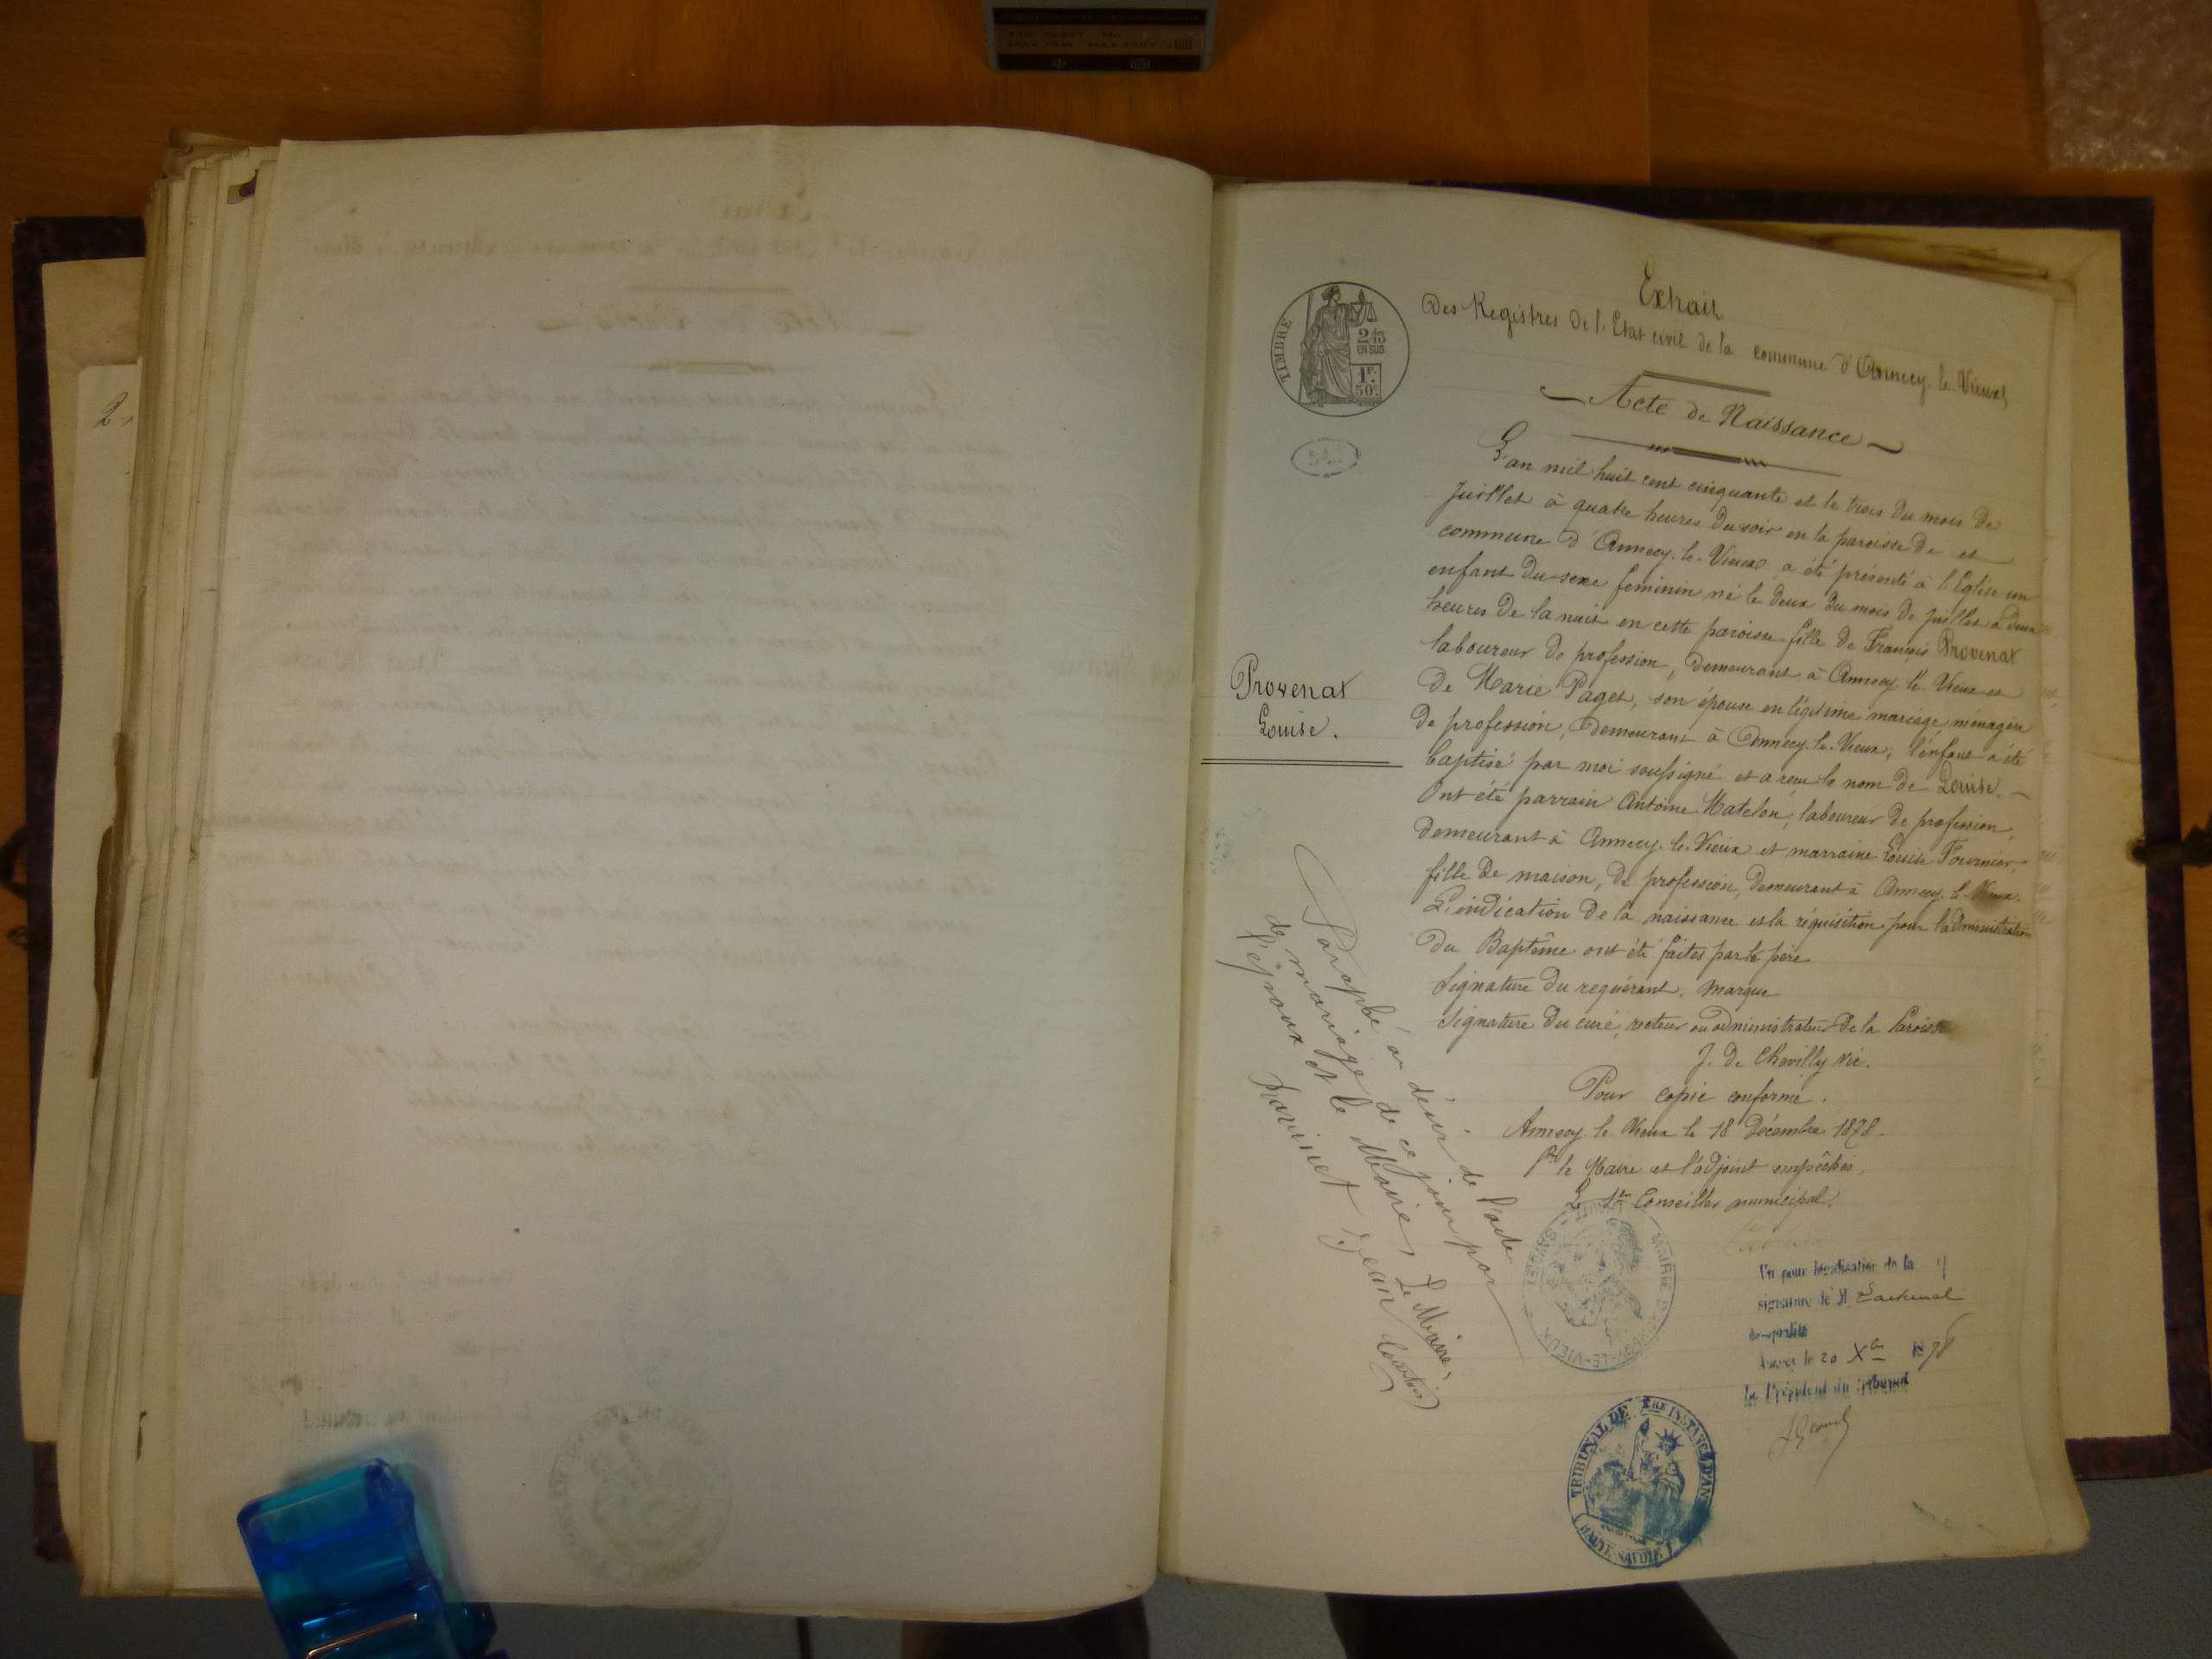 Extrait
Des Registres de l'Etat civil de la commune d'Annecy-le-Vieux
Acte de Naissance
TIMBRE
2/10
EN SUS
1F.
50c.
L'an mil huit cent cinquante et le trois du mois de
Juillet à quatre heures du soir en la paroisse de et
commune d'Annecy-le-Vieux a été présenté à l'Eglise un
enfant du sexe feminin né le deux du mois de juillet à deux
heures de la nuit en cette paroisse fille de François Provenat
laboureur de profession, demeurant à Annecy-le-Vieux et
de Marie Paget, son épouse en légitime mariage ménagère
de profession, demeurant à Annecy-le-Vieux, l'enfant a été
baptisé par moi soussigné et a reçu le nom de Louise.
Ont été parrain Antoine Matelon, laboureur de profession,
demeurant à Annecy-le-Vieux et marraine Louise Fournier
fille de maison, de profession, demeurant à Annecy-le-Vieux.
L'indication de la naissance et la réquisition pour l'administration
du Baptême ont été faites par le père
Signature du requérant. marque
Signature du curé, recteur ou administrateur de la Paroisse
J. de Chevilly vic.
Pour copie conforme.
Annecy-le-Vieux le 18 Décembre 1878.
Pr le Maire et l'adjoint empêchés.
Le 1er Conseiller municipal.
Provenat
Louise.
Paraphé au désir de l'acte
de mariage de ce jour par
l'époux et le Maire, Le Maire,
Jean
MAIRIE D'ANNECY-LE-VIEUX
Vu pour législation de la
signature de M Lachenal
Annecy le 20 Xbre 1878
Le Président du tribunal
TRIBUNAL DE 1RE INSTANCE D'AN
HAUTE-SAVOIE